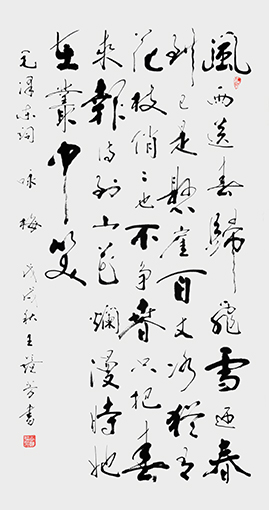 風雨送春歸飛雪迎春
到已是懸崖百丈冰犹有
花枝俏〻也不争春只把春
来報待到山花爛漫時她
在叢中笑
毛澤东詞 咏梅 戊戌秋王芳書